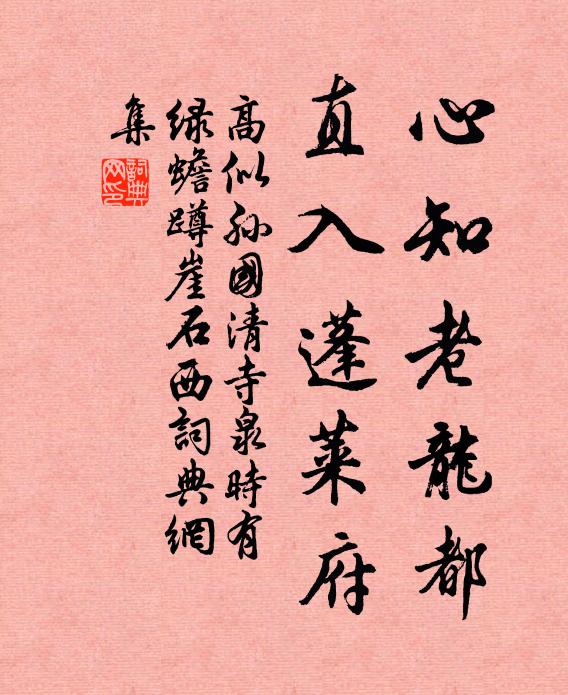 心知老龍都
直入蓬萊府
高似孫國清寺泉時有
绿蟾蹲崖石西詞典網
集
詞典
网印